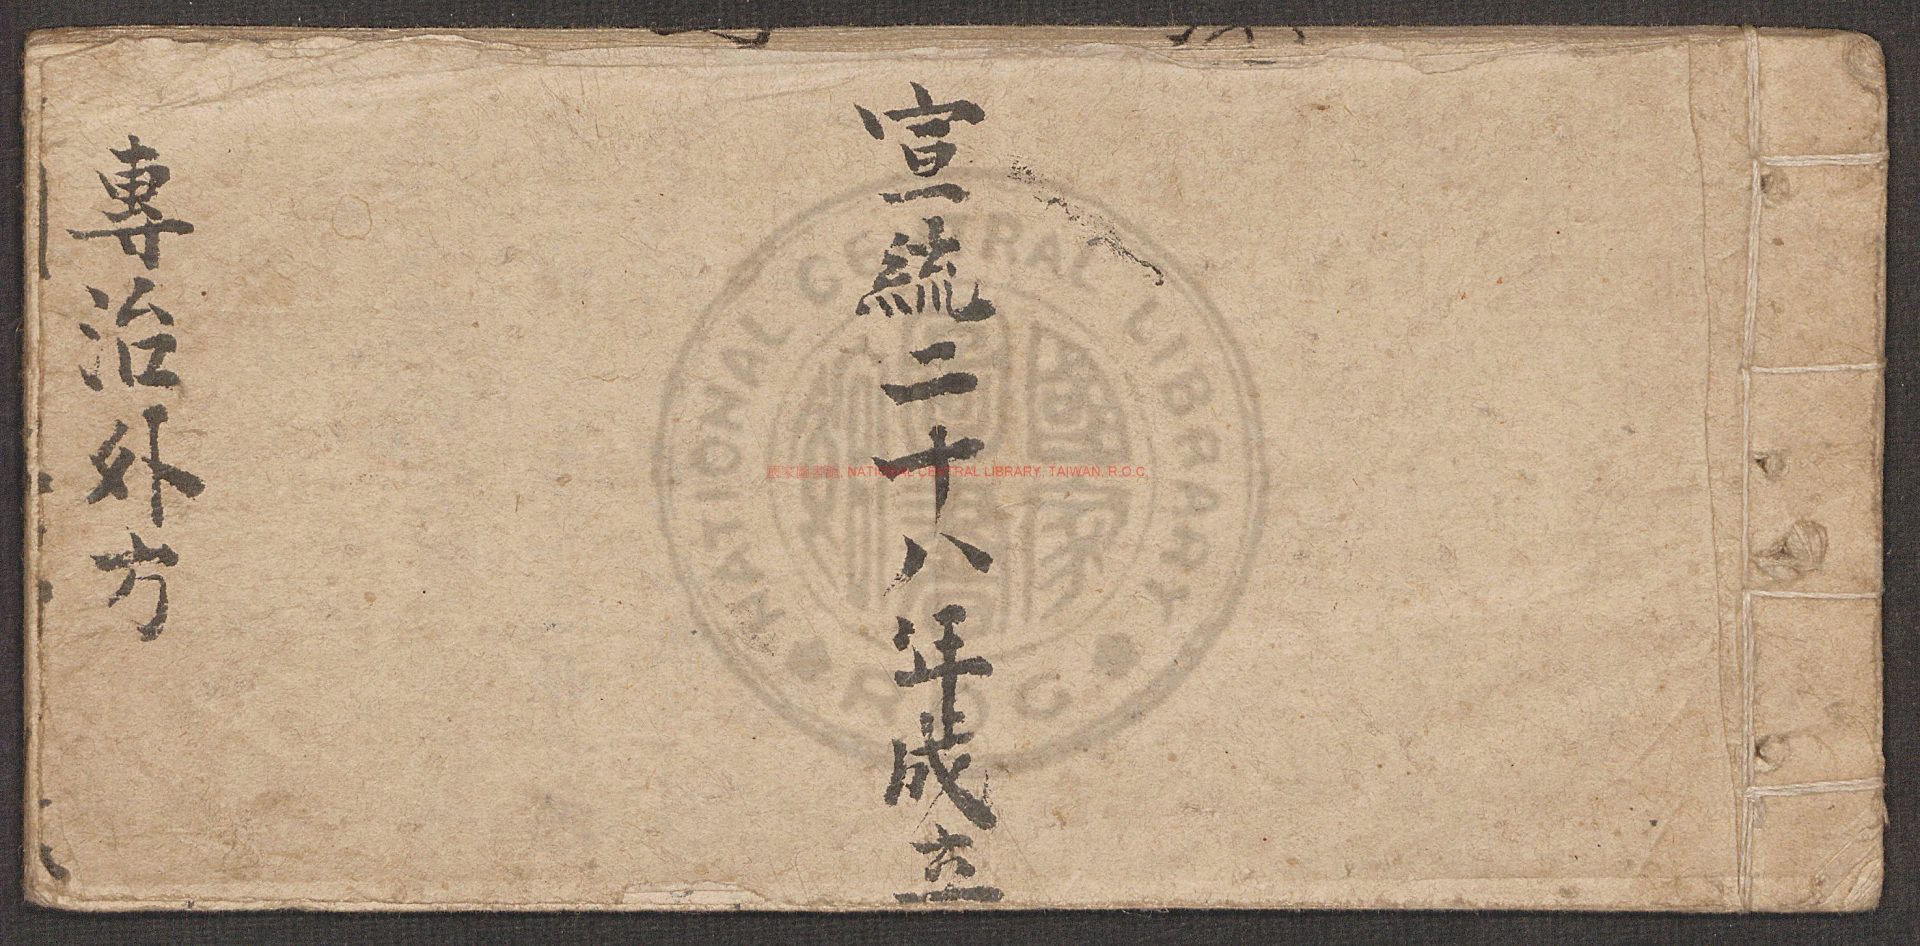 宣統二十八年成立
專治外方
NATIONAL CENTRAL LIBRARY
R.O.C
國家圖書館, NATIONAL CENTRAL LIBRARY, TAIWAN, R.O.C.